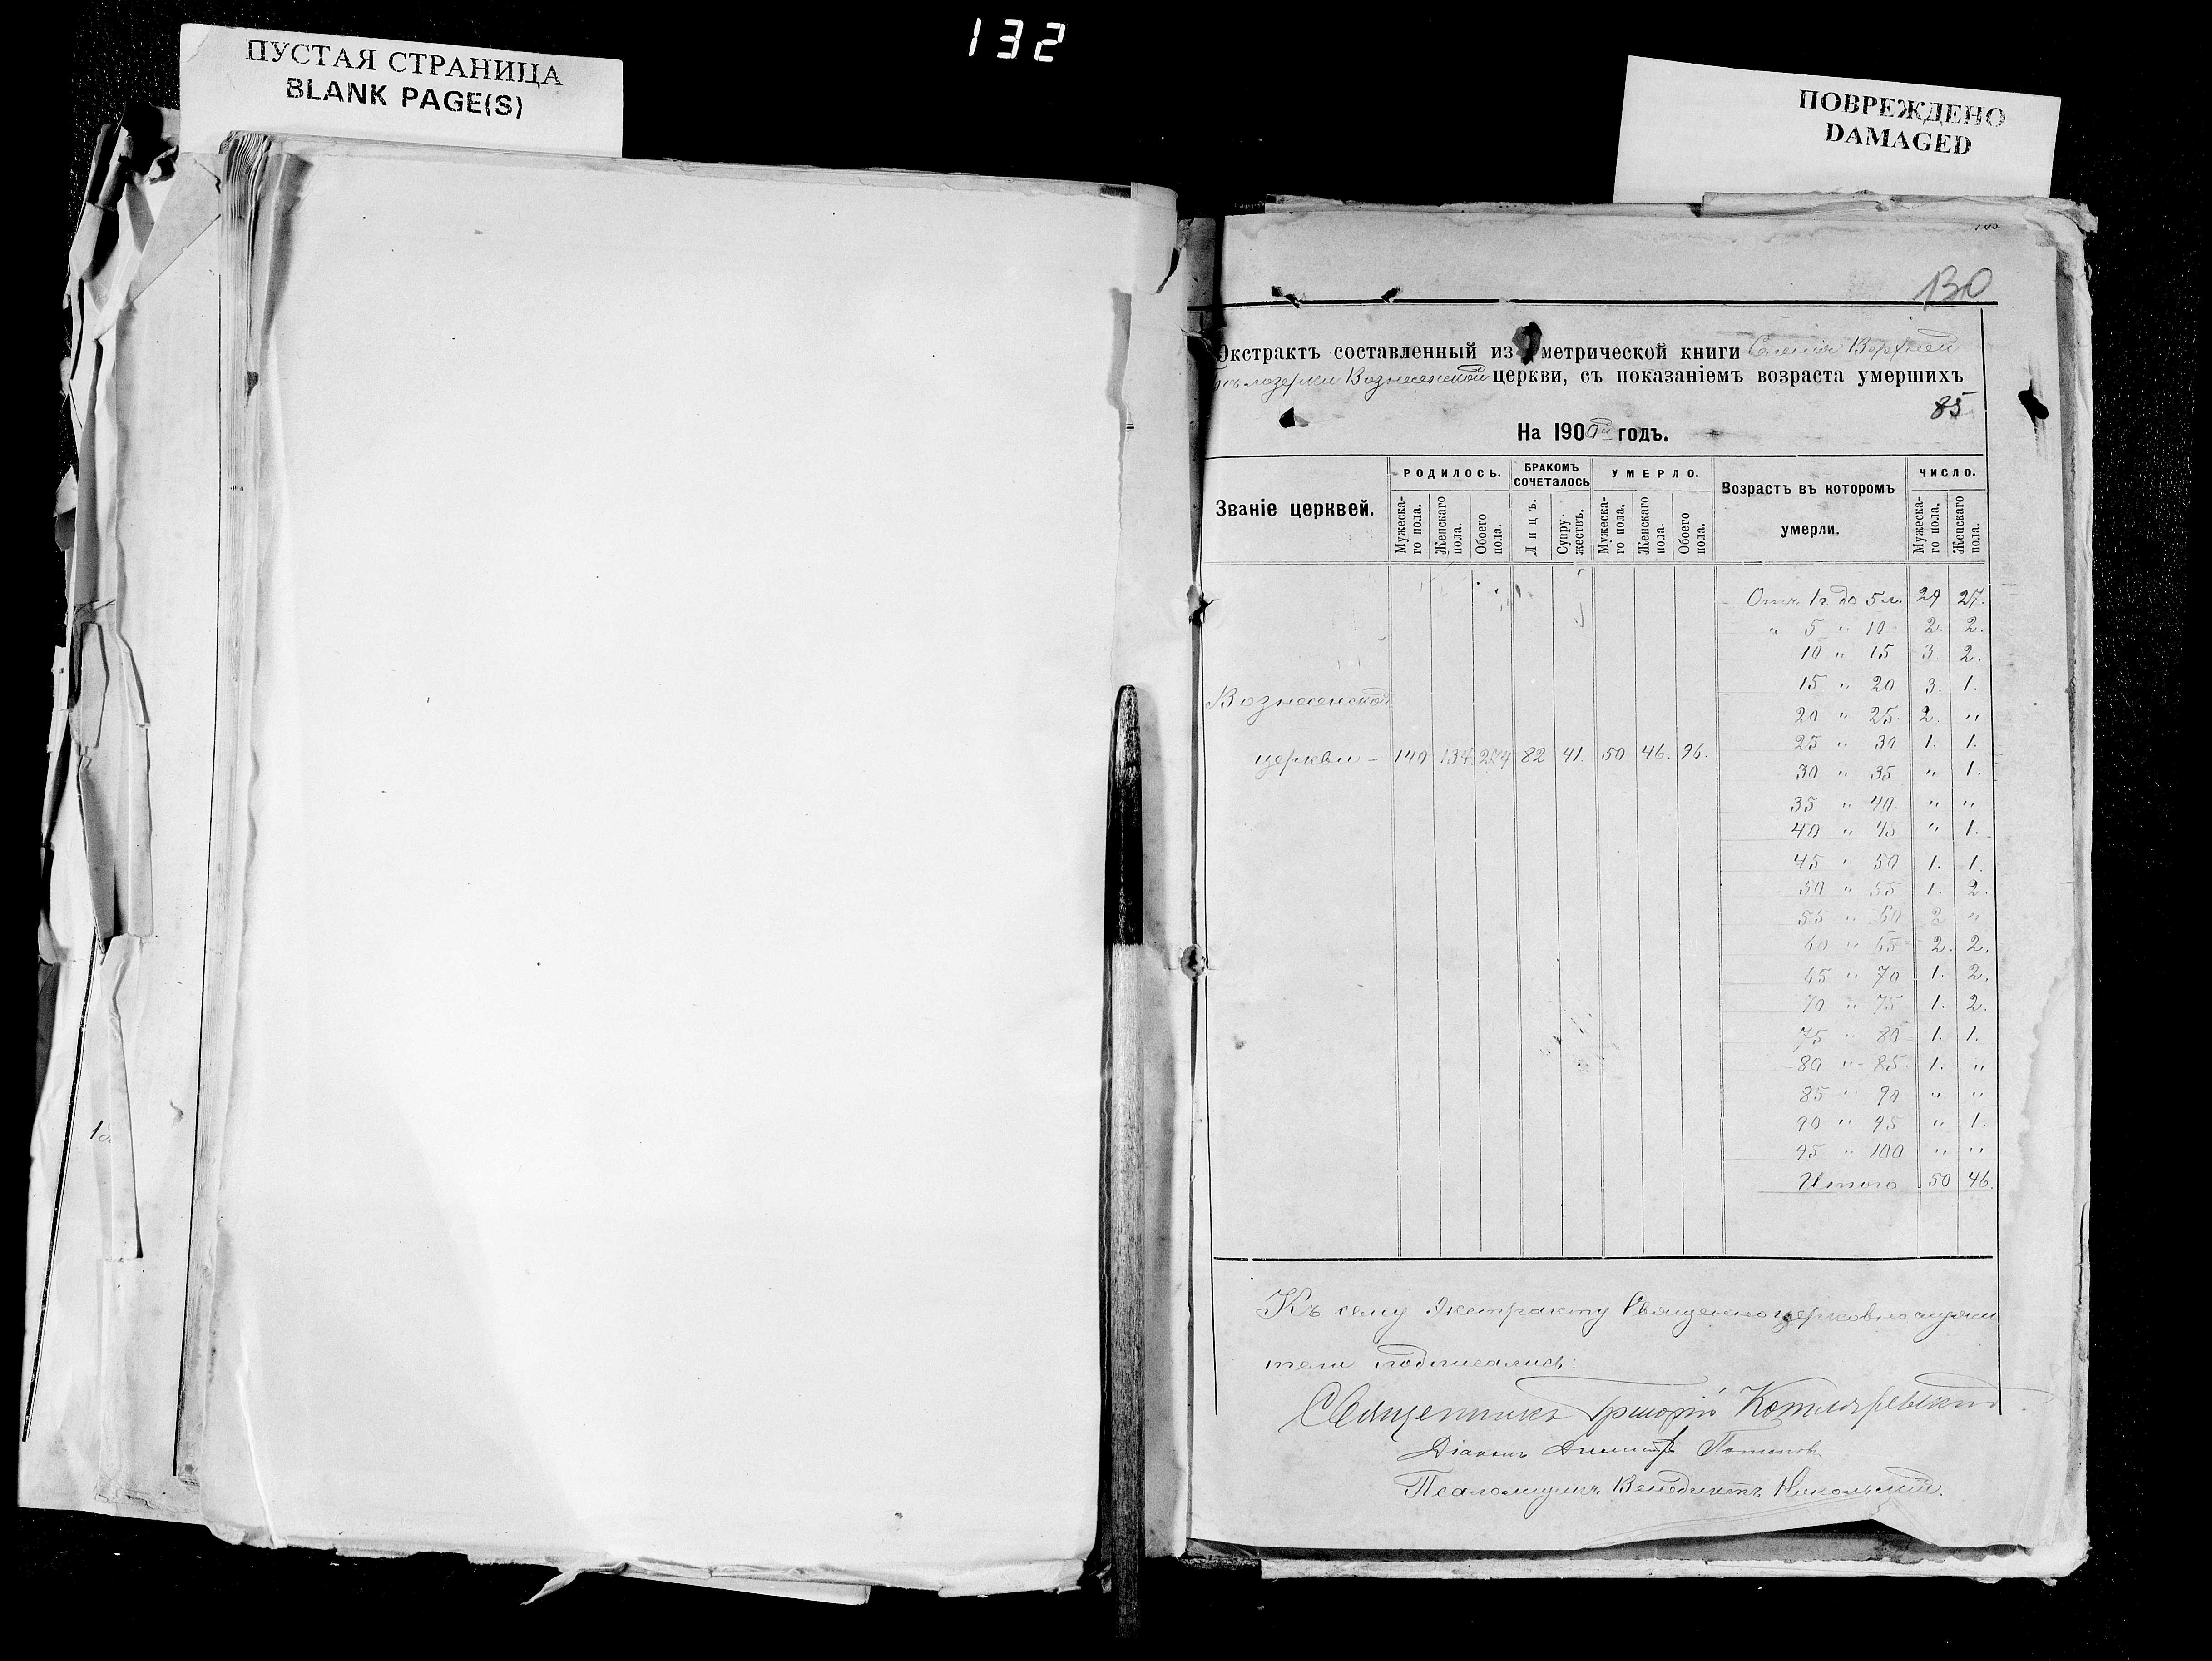 132
ПУСТАЯ СТРАНИЦА
BLANK PAGE(S)
ПОВРЕЖДЕНО
DAMAGED
130
Экстрактъ составленный изъ метрической книги Селенія Верхней
Бѣлозерки Вознесенской церкви, съ показаніемъ возраста умершихъ
85
На 1900й годъ.
Званіе церквей.
РОДИЛОСЬ.
БРАКОМЪ СОЧЕТАЛОСЬ
УМЕРЛО.
Возрастъ въ которомъ умерли.
ЧИСЛО.
Мужеска-го пола.
Женскаго пола.
Обоего пола.
Лицъ.
Супру-жествъ.
Мужеска-го пола.
Женскаго пола
Обоего пола.
Мужеска-го пола.
Женскаго пола.
Отъ 1 г. до 5 л. 29 27.
" 5 " 10 2. 2.
10 " 15 3. 2.
15 " 20 3. 1.
20 " 25. 2. "
25 " 30 1. 1.
30 " 35 " 1.
35 " 40. " "
40 " 45 " 1.
45 " 50 1. 1.
50 " 55 1. 2.
55 " 60 2 "
60 " 65 2. 2.
65 " 70 1. 2.
70 " 75 1. 2.
75 " 80 1. 1.
80 " 85. 1. "
85 " 90 " "
90 " 95 " 1.
95 " 100 " "
Итого 50 46.
Вознесенской
церкви – 140 134. 274 82 41. 50 46. 96.
Къ сему Экстракту Священноцерковнослужи
тели подписались:
Священникъ Григорій Котляревскій.
Діаконъ Димитрій Потапов
Псаломщикъ Венедиктъ Никольскій.